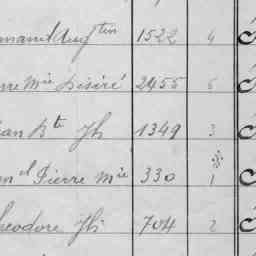 manuel Aug tin 1522 4
rre Mie Désiré 2455 5
ean Bte Jh 1349 3
el Pierre Mie 330 1
heodore Jh 704 2